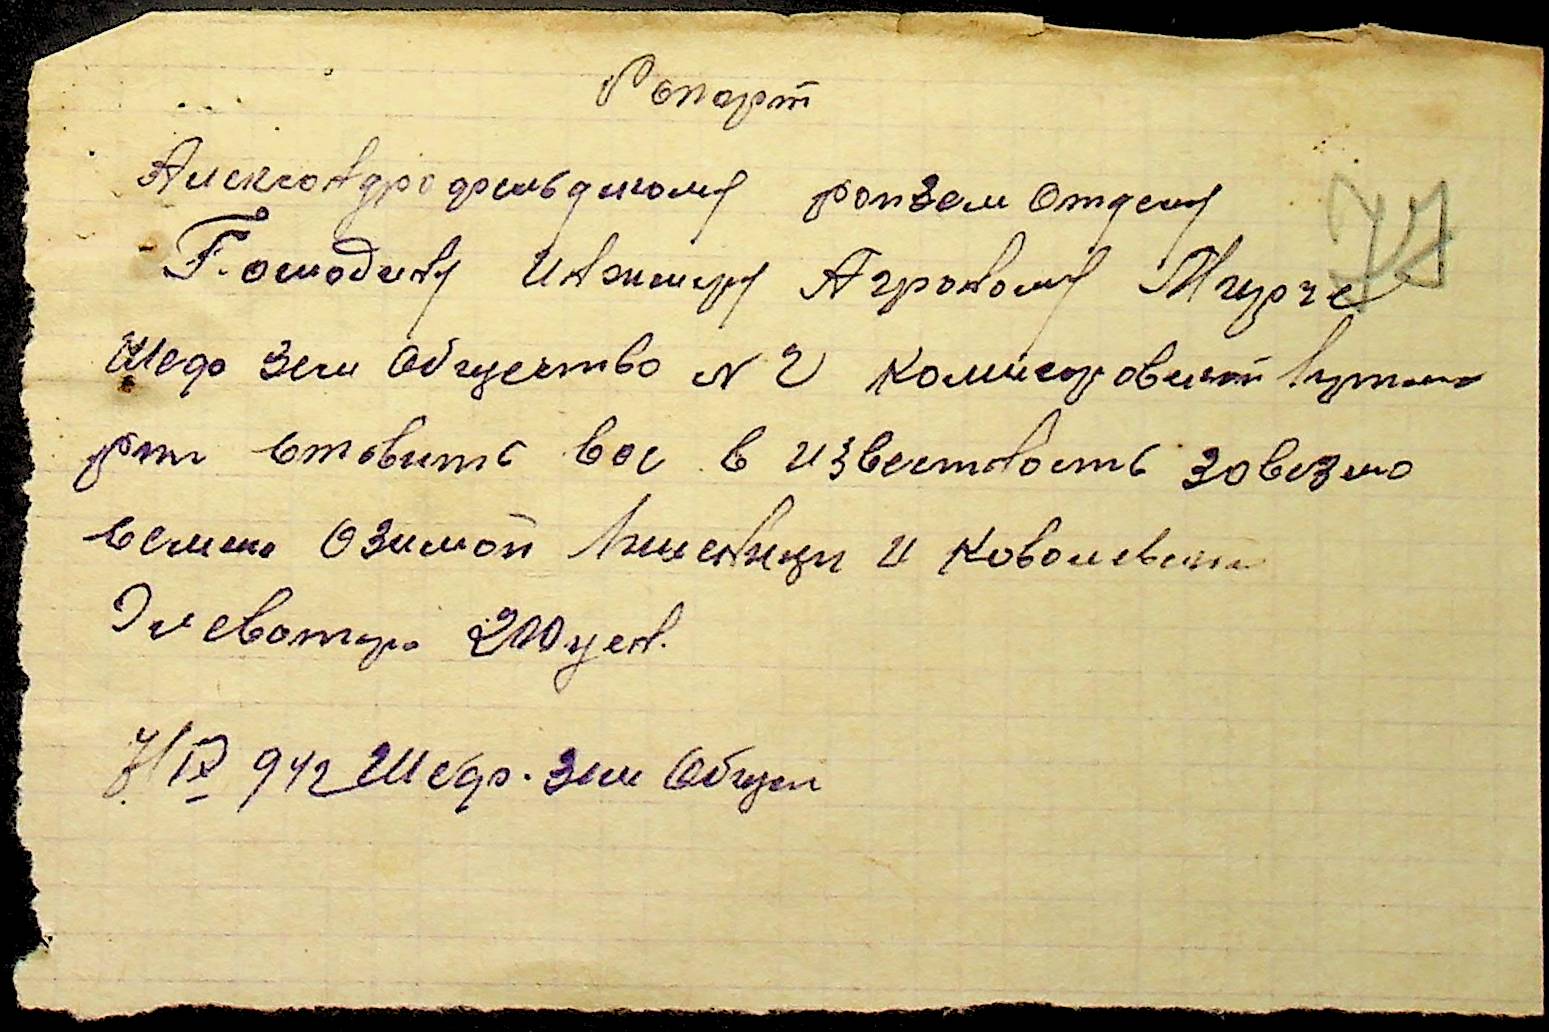 Рапорт
Александрофельдскому райзем отделу
Господину Инженеру Агроному Мирче
Шеф зем Общество N 2 Комисаровской
ставить вас в известность завезено
семена Озимой Пшеницы и Ковалевский
Элеватора 200 цен.
7/IX 942 Шеф. зем Общи